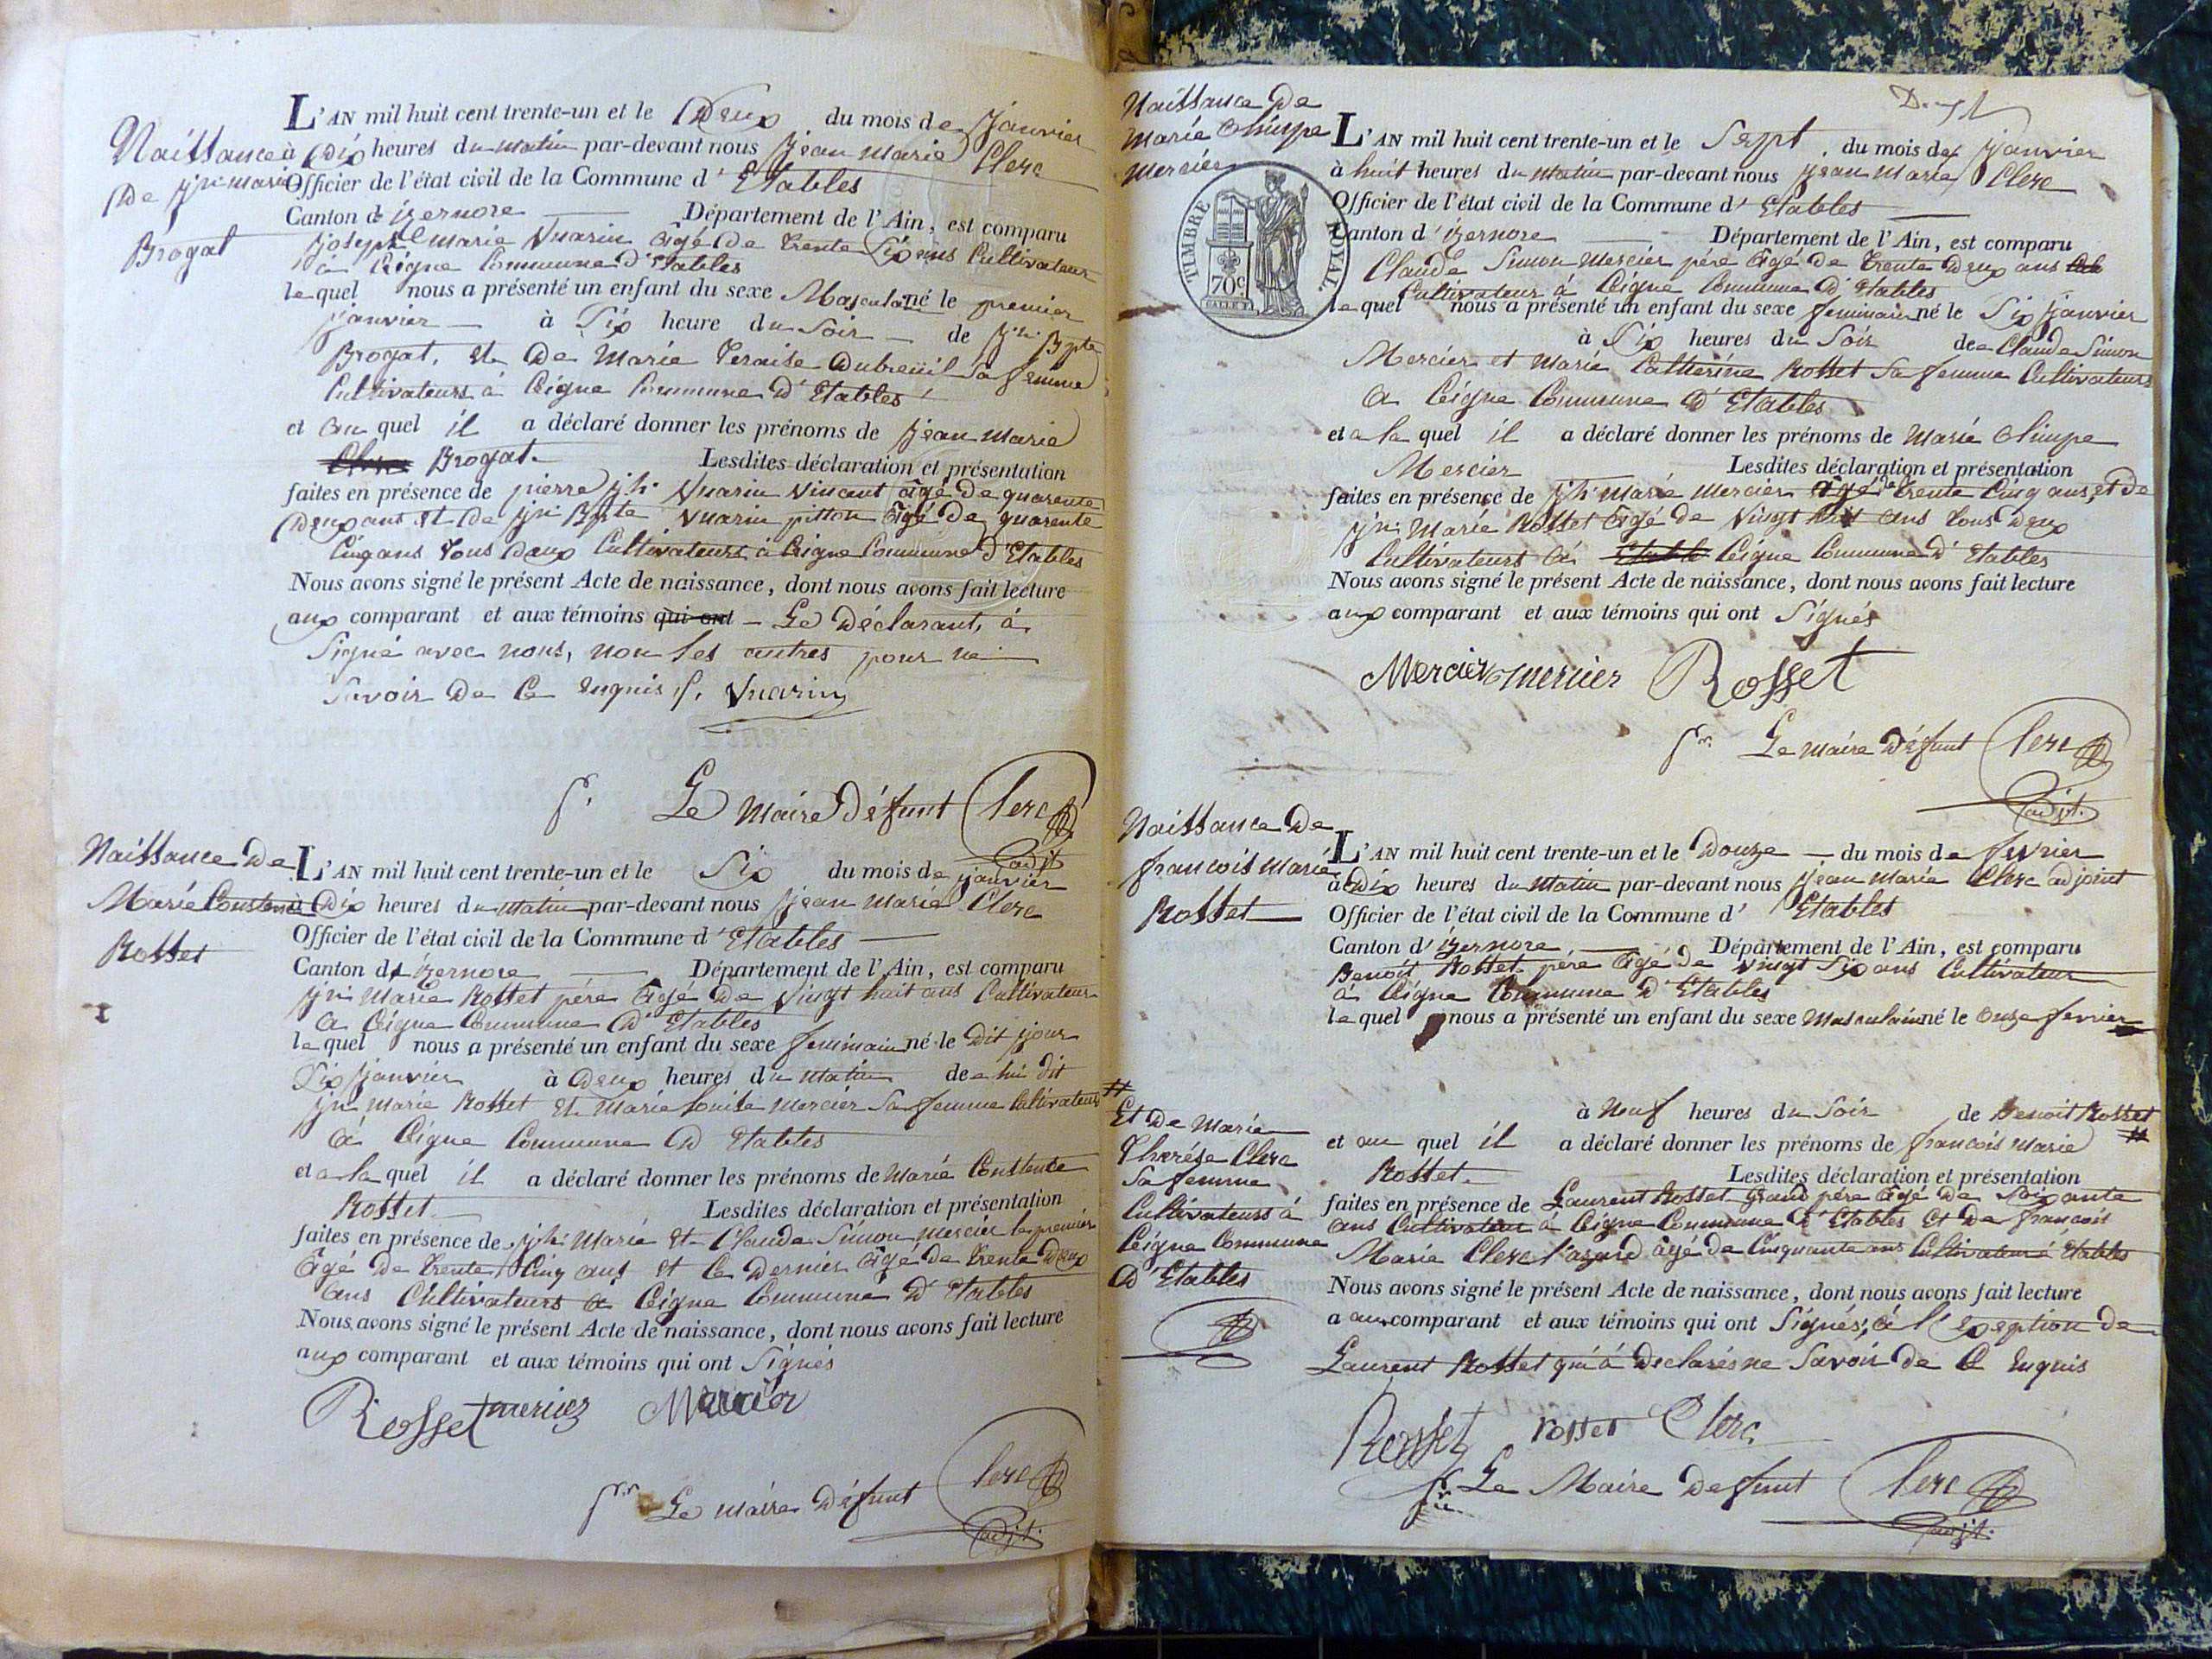 Naissance
De jn marie
Brogat
L'AN mil huit cent trente-un et le Deux du mois de janvier
à Dix heures du matin par-devant nous jean marie Clerc
Officier de l'état civil de la Commune d'Etables
Canton d izernore Département de l'Ain, est comparu
joseph marie Vuarin âgé De trente Six ans Cultivateur
à Ceigne Commune d'Etables
lequel nous a présenté un enfant du sexe Masculain né le premier
janvier à Six heure du Soir de jn Bpte
Brogat, et De Marie teraise Dubreüil Sa femme
Cultivateurs à Ceigne Commune D'Etables
et au quel il a déclaré donner les prénoms de jean marie
Clerc Brogat. Lesdites déclaration et présentation
faites en présence de pierre jh Vuarin Vincent âgé De quarente
Deux ans et De jn Bpte Vuarin pitton âgé De quarente
Cinq ans tous Deux Cultivateurs à Ceigne Commune D'Etables
Nous avons signé le présent Acte de naissance, dont nous avons fait lecture
aux comparant et aux témoins qui ont Le Déclarant, à
Signé avec nous, non les autres pour ne
Savoir De Ce enquis /. Vuarin
p. Le Maire Défunt Clerc
adjt
Naissance De
Marie Constence
Rosset
L'AN mil huit cent trente-un et le Six du mois de janvier
à Dix heures du matin par-devant nous jean marie Clerc
Officier de l'état civil de la Commune d'Etables
Canton d izernore Département de l'Ain, est comparu
jn Marie Rosset père âgé De Vingt huit ans Cultivateur
a Ceigne Commune D'Etables
lequel nous a présenté un enfant du sexe feminain né le Dit jour
Six janvier à Deux heures du matin de lui dit
jn marie Rosset et Marie louise mercier Sa femme Cultivateurs
à Ceigne Commune D Etables
et a la quel il a déclaré donner les prénoms de Marie Constence
Rosset Lesdites déclaration et présentation
faites en présence de jh Marie et Claude Simon mercier le premier
âgé De trente Cinq ans et le Dernier âgé De trente Deux
ans Cultivateurs a Ceigne Commune D'Etables
Nous avons signé le présent Acte de naissance, dont nous avons fait lecture
aux comparant et aux témoins qui ont Signés
Rosset mercier Mercier
pr Le maire Défunt Clerc
adjt.
Naissance De
Marie Olimpe
Mercier
TIMBRE ROYAL
70c
L'AN mil huit cent trente-un et le Sept du mois de janvier
à huit heures du matin par-devant nous jean marie Clerc
Officier de l'état civil de la Commune d'Etables
Canton d'izernore Département de l'Ain, est comparu
Claude Simon mercier père âgé De trente Deux ans
Cultivateur à Ceigne Commune D'Etables
lequel nous a présenté un enfant du sexe feminain né le Six janvier
à Six heures du Soir de Claude Simon
Mercier et Marie Catherine Rosset Sa femme Cultivateurs
a Ceigne Commune D'Etables
et a la quel il a déclaré donner les prénoms de Marie Olimpe
Mercier Lesdites déclaration et présentation
faites en présence de jh Marie Mercier âgé de trente Cinq ans, et De
jn Marie Rosset âgé De Vingt huit ans tous Deux
Cultivateurs à Etables Ceigne Commune D'Etables
Nous avons signé le présent Acte de naissance, dont nous avons fait lecture
aux comparant et aux témoins qui ont Signés
Mercier mercier Rosset
pr Le maire Défunt Clerc
adjt.
Naissance De
francois Marie
Rosset
L'AN mil huit cent trente-un et le Douze du mois de fevrier
à Dix heures du matin par-devant nous jean marie Clerc adjoint
Officier de l'état civil de la Commune d'Etables
Canton d'izernore Département de l'Ain, est comparu
Benoit Rosset père âgé De Vingt Six ans Cultivateur
à Ceigne Commune D'Etables
lequel nous a présenté un enfant du sexe Masculain né le onze fevrier
à Neuf heures du Soir de Benoit Rosset #
et au quel il a déclaré donner les prénoms de francois Marie
Rosset. Lesdites déclaration et présentation
faites en présence de Laurent Rosset grand père âgé De Soixante
ans Cultivateur à Ceigne Commune D'Etables et De francois
Marie Clerc l'azard âgé De Cinquante ans Cultivateur à Etables
Nous avons signé le présent Acte de naissance, dont nous avons fait lecture
a au comparant et aux témoins qui ont Signés, à l'exeption De
Laurent Rosset qui à Declarés ne Savoir De Ce enquis
# Et De Marie
Thérése Clerc
Sa femme
Cultivateurs à
Ceigne Commune
D'Etables
Rosset rosset Clerc
pr Le Maire Defunt Clerc
adjt.